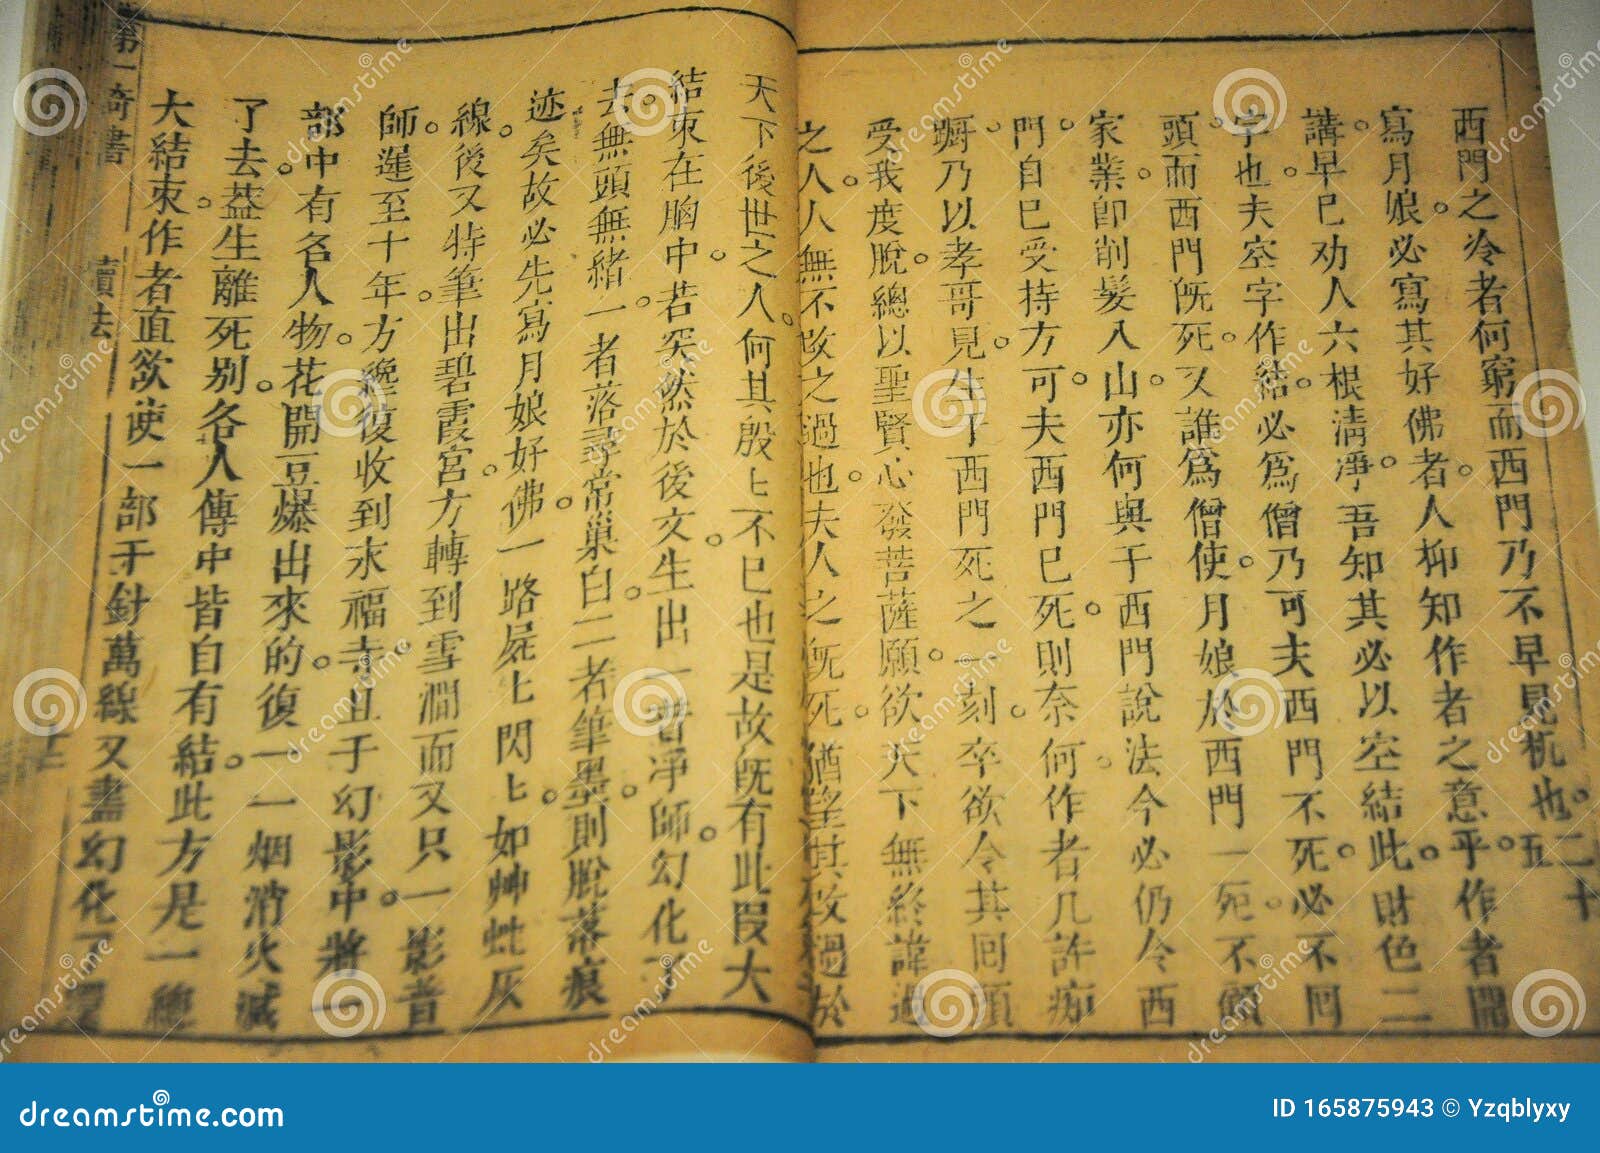 西門之冷者何窮而西門乃不早見机也。二十五
寫月娘。必寫其好佛者。人抑知作者之意乎。作者開
講。早已劝人六根清凈。吾知其必以空結此。財色二
字也。夫空字作結。必爲僧乃可。夫西門不死。必不囘
頭。而西門旣死。又誰爲僧。使月娘於西門一死。不顧
家業。卽削髮入山。亦何與于西門說法。今必仍令西
門自已受持方可。夫西門已死。則奈何。作者几許痴
蹰。乃以孝哥見。生于西門死之一刻。卒欲令其囘頭
受我度脫。總以聖賢心發菩薩願。欲天下無終諱過
之人。人無不改之過也。夫人之旣死。猶望其改過於
天下後世之人。何其殷上不已也是故旣有此段大
結束在胸中。若突然於後文。生出一普凈師。幻化了
去。無頭無緒。一者落尋常巢臼。二者筆墨。則脫落痕
迹矣故必先寫月娘好佛。一路屍上閃上。如艸蛇灰
線。後又特筆出碧霞宮。方轉到雪澗而又只一影普
師。遲至十年。方纔復收到永福寺。且于幻影中。將一
部中有名人物。花開豆爆出來的。復一一烟消火滅
了去。葢生離死别。各人傳中皆自有結。此方是一總
大結束。作者直欲使一部千針萬線又盡幻化了還
第一奇書
讀法
dreamstime
dreamstime.com
ID 165875943 © Yzqblyxy